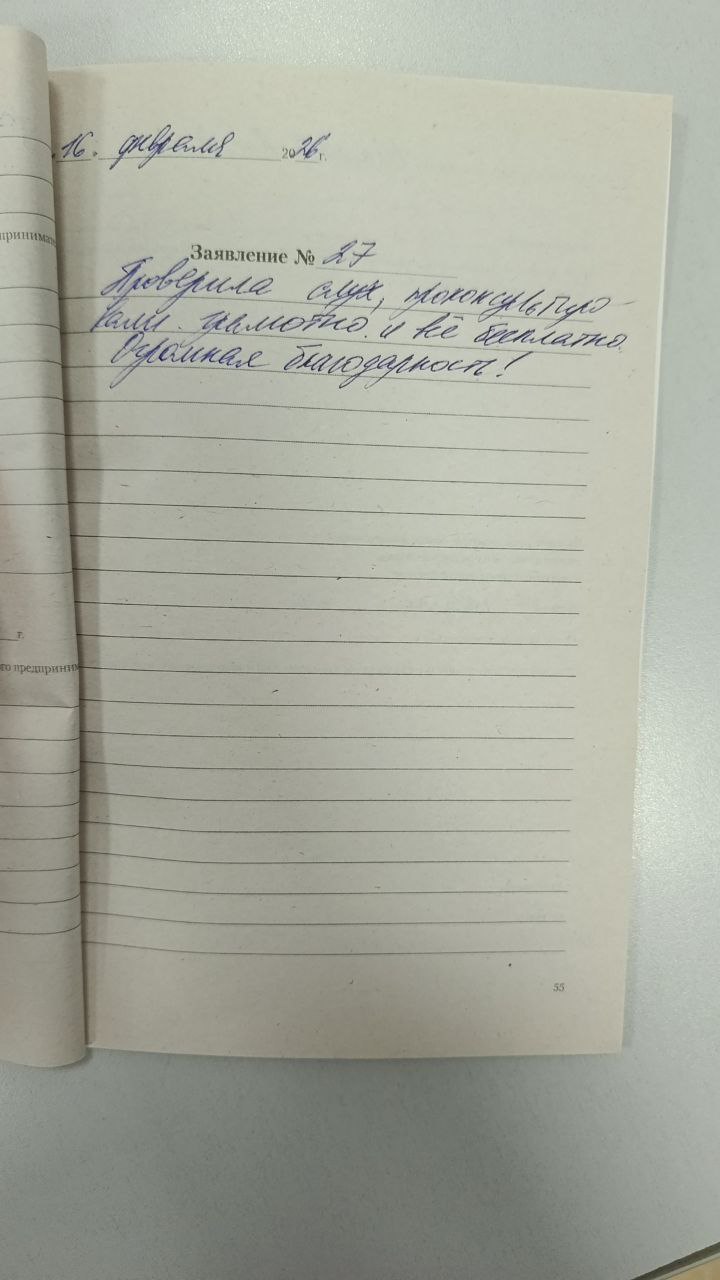 16. февраля 2026 г.
принимат
Заявление № 27
Проверила слух, проконсультиро-
вали грамотно и всё бесплатно.
Огромная благодарность!
г.
го предприним
55